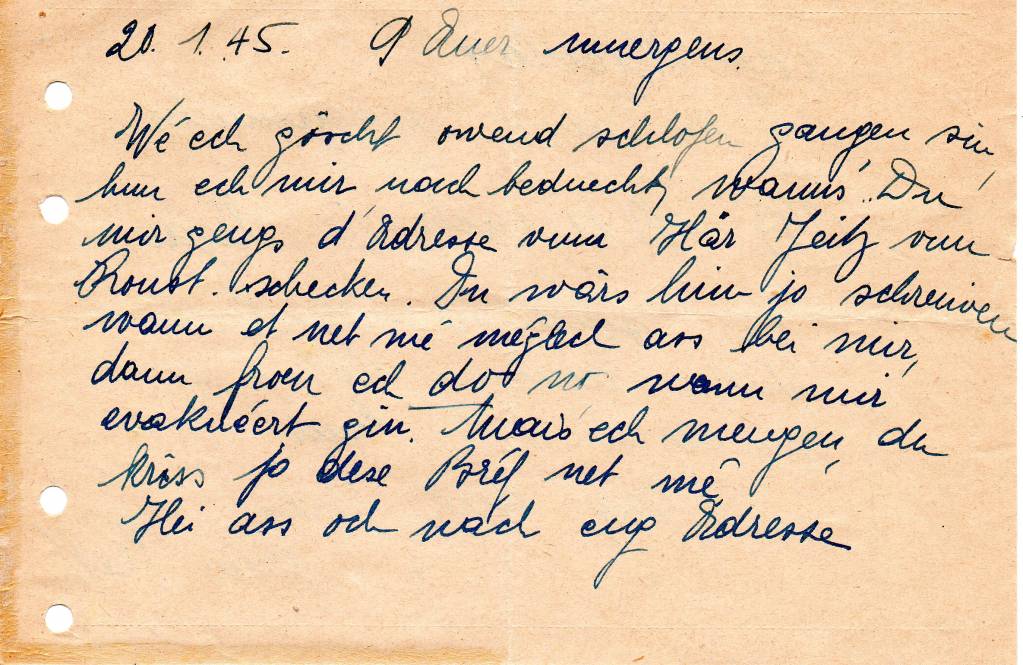 20. 1. 45. 9 Auer muergens.
Wé ech göscht owend schlofen gangen sin,
hun ech mir nach beduecht, wanns Du
mir gengs d'Adresse vum Här Jeitz vum
Roust. schecken. Du wärs him jo schreiwen
wann et net mé méglech ass bei mir,
dann froen ech do no wann mir
evakuéert gin. Mais ech mengen du
kriss jo dese Bréf net mé,
Hei ass och nach eng Adresse